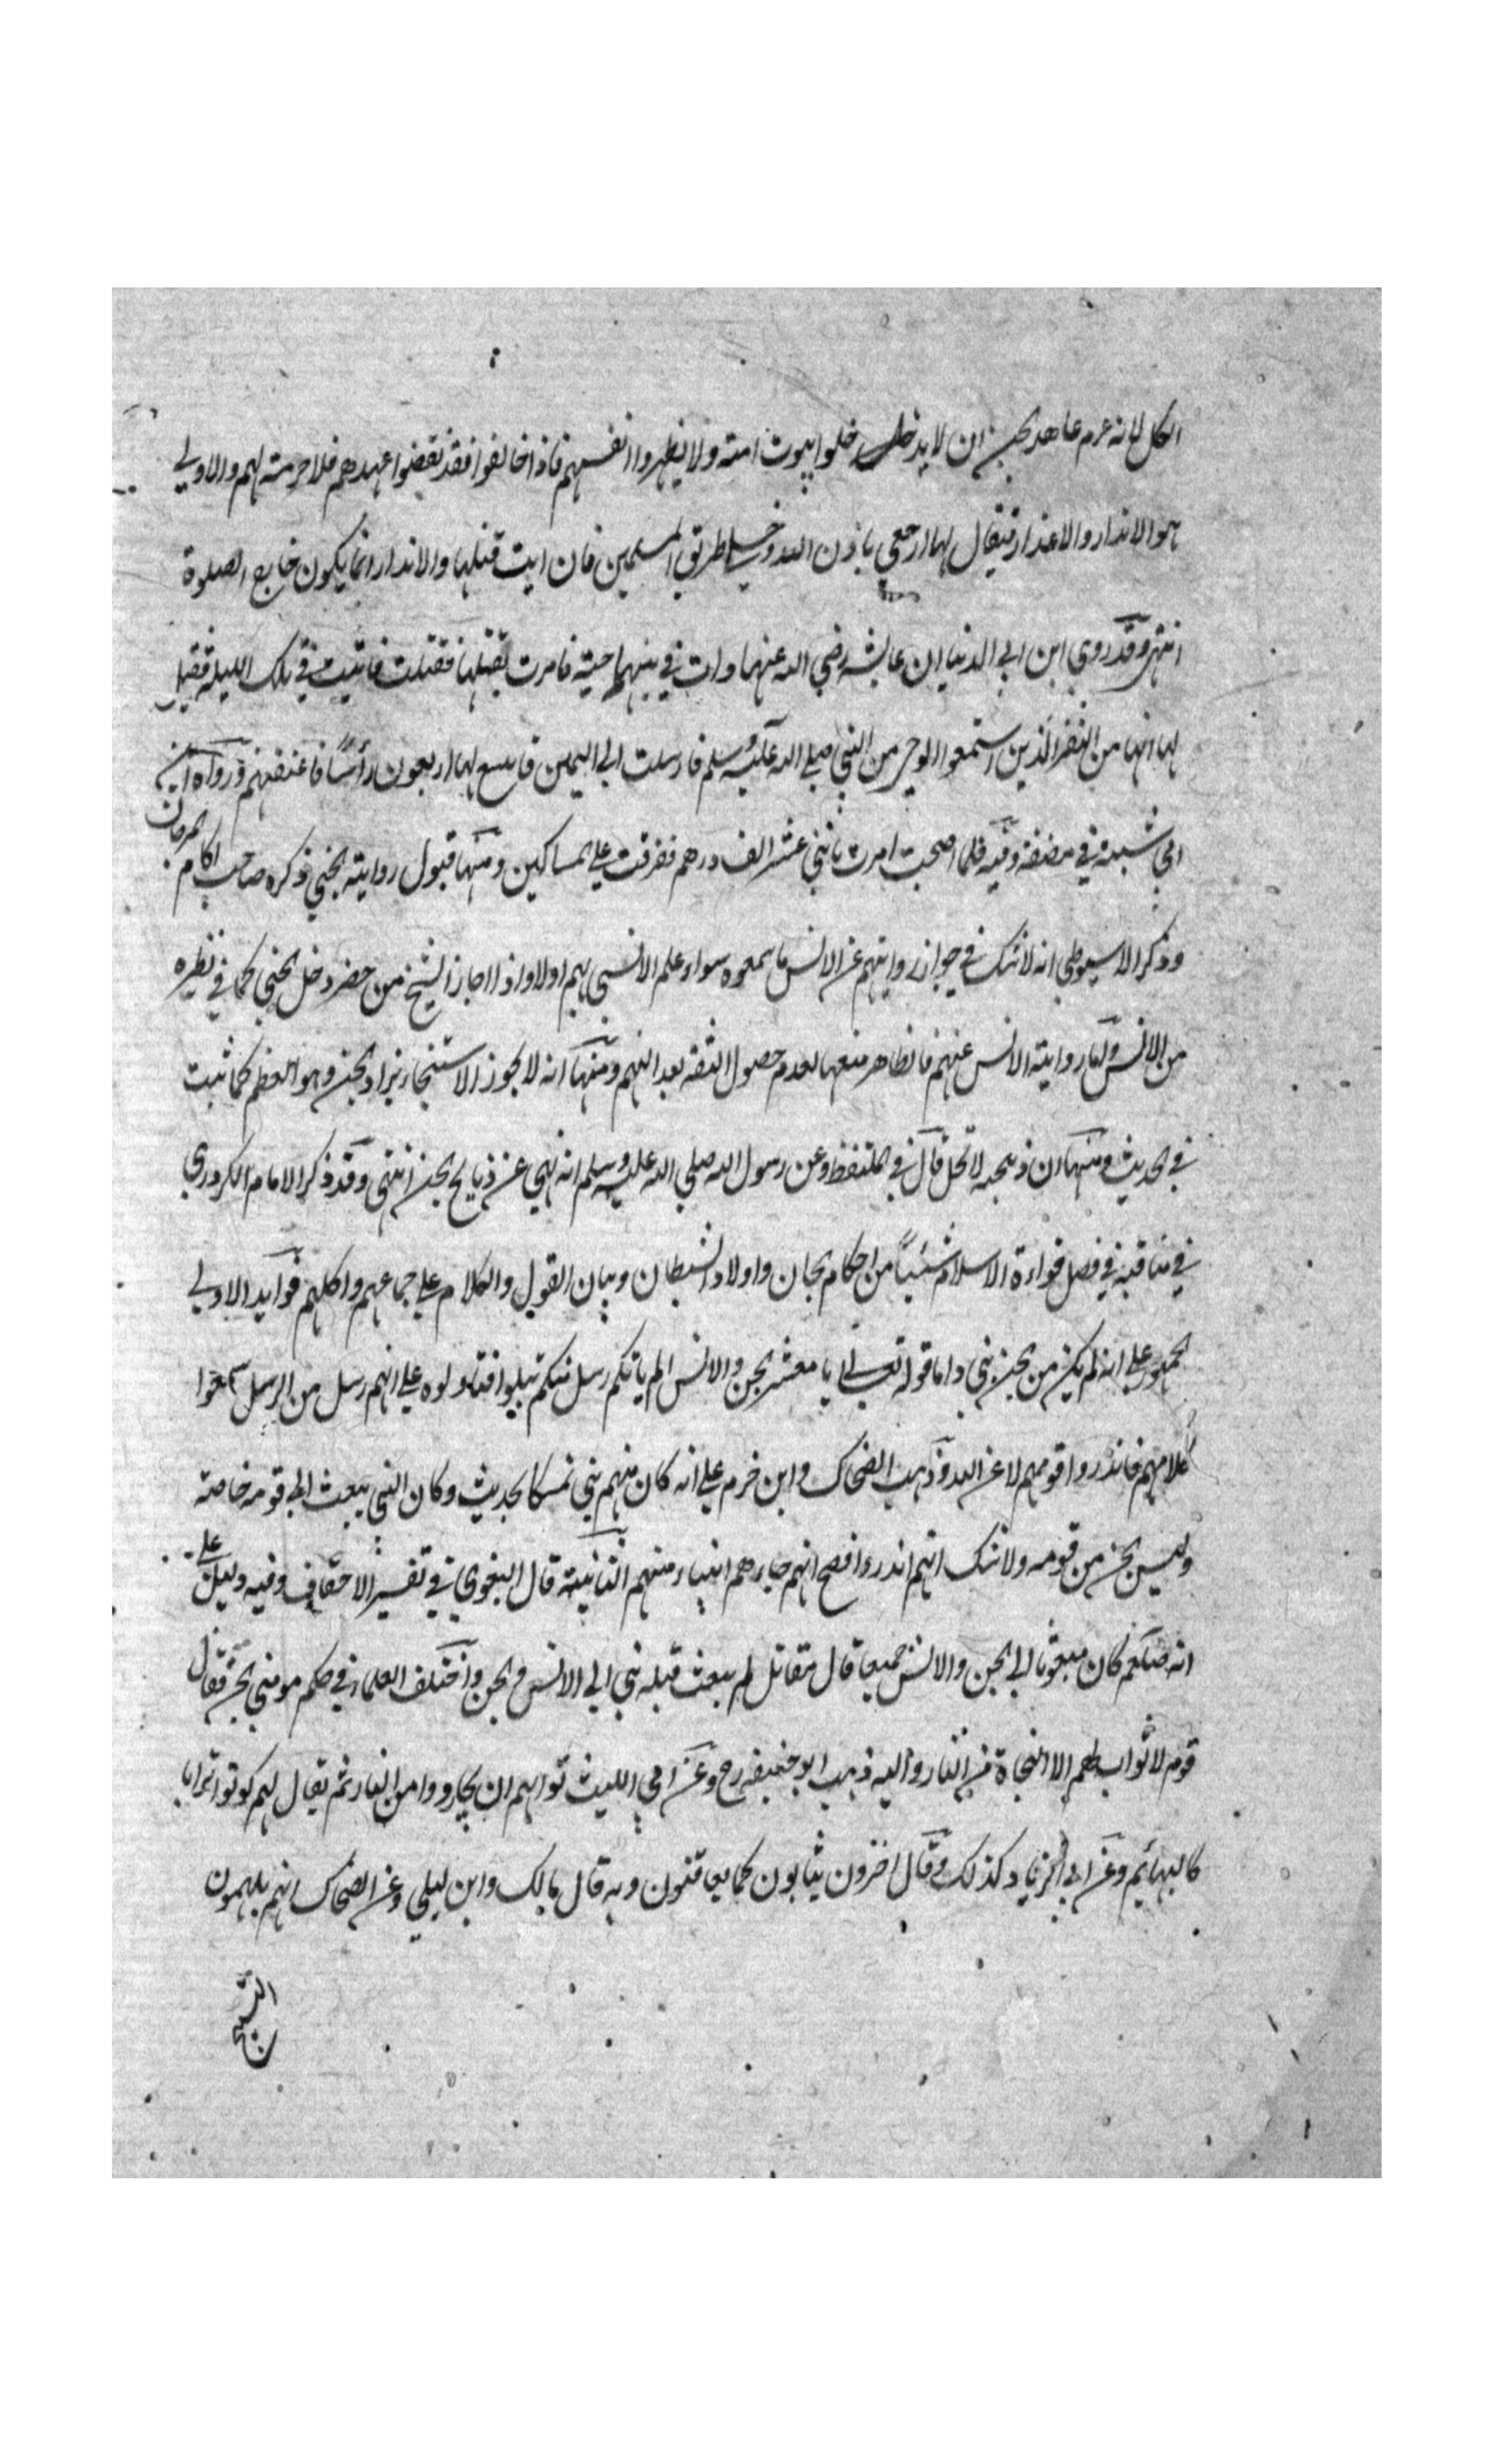 الكل لانه عم عاهد الجن ان لا يدخلوا بيوت امته ولا يظهروا انفسهم فاذا خالفوا فقد نقضوا عهدهم فلا حرمة لهم والاولى
هو الانذار والاعذار فيقال لها ارجعي باذن الله وخلي طريق المسلمين فان ابت قتلها والانذار انما يكون خارج الصلوة
انتهى وقد روى ابن ابي الدنيا ان عايشة رضي الله عنها رات في بيتها حية فامرت بقتلها فقتلت فاتيت في تلك الليلة فقيل
لها انها من النفر الذين استمعوا الوحي من النبي صلى الله عليه وسلم فارسلت الى اليمن فابتيع لها اربعون رأسًا فاعتقتهم ورواه ابن
ابي شيبة في مصنفه وفيه فلما اصبحت امرت باثني عشر الف درهم ففرقت على المساكين ومنها قبول رواية الجني ذكره صاحب اكام المرجان
وذكر الاسيوطي انه لا شك في جواز روايتهم عن الانس ما سمعوه سواء علم الانسي بهم اولا واذا اجاز الشيخ من حضر دخل الجني كما في نظيره
من الانس واما رواية الانس عنهم فالظاهر منعها لعدم حصول الثقة بعدالتهم ومنها انه لا يجوز الاستنجاء بزاد الجن وهو العظم كما ثبت
في الحديث ومنها ان ذبيحته لا تحل قال في الملتقط وعن رسول الله صلى الله عليه وسلم انه نهى عن ذبايح الجن انتهى وقد ذكر الامام الكردري
في مناقبه في فصل قراءة الاسلام شيئًا من احكام الجان واولاد الشيطان وبيان القول والكلام على جماعهم واكلهم فوايد الاولى
الجمهور على انه لم يكن من الجن نبي واما قوله تعالى يا معشر الجن والانس الم ياتكم رسل منكم فتاولوه على انهم رسل من الرسل سمعوا
كلامهم فانذروا قومهم لا عن الله وذهب الضحاك وابن حزم على انه كان منهم نبي تمسكا بحديث وكان النبي يبعث الى قومه خاصة
وليس الجن من قومه ولا شك انهم انذروا فصح انهم جاءهم انبياء منهم الثانية قال البغوي في تفسير الاحقاف وفيه دليل على
انه صلعم كان مبعوثا الى الجن والانس جميعا قال مقاتل لم يبعث قبله نبي الى الانس والجن واختلف العلماء في حكم مومني الجن فقال
قوم لا ثواب لهم الا النجاة من النار واليه ذهب ابو حنيفة رح وعن ابي الليث ثوابهم ان يجاروا من النار ثم يقال لهم كونوا ترابا
كالبهايم وعن ابي الزناد كذلك وقال اخرون يثابون كما يعاقبون وبه قال مالك وابن ليلى وعن الضحاك انهم يلهمون
التسبيح